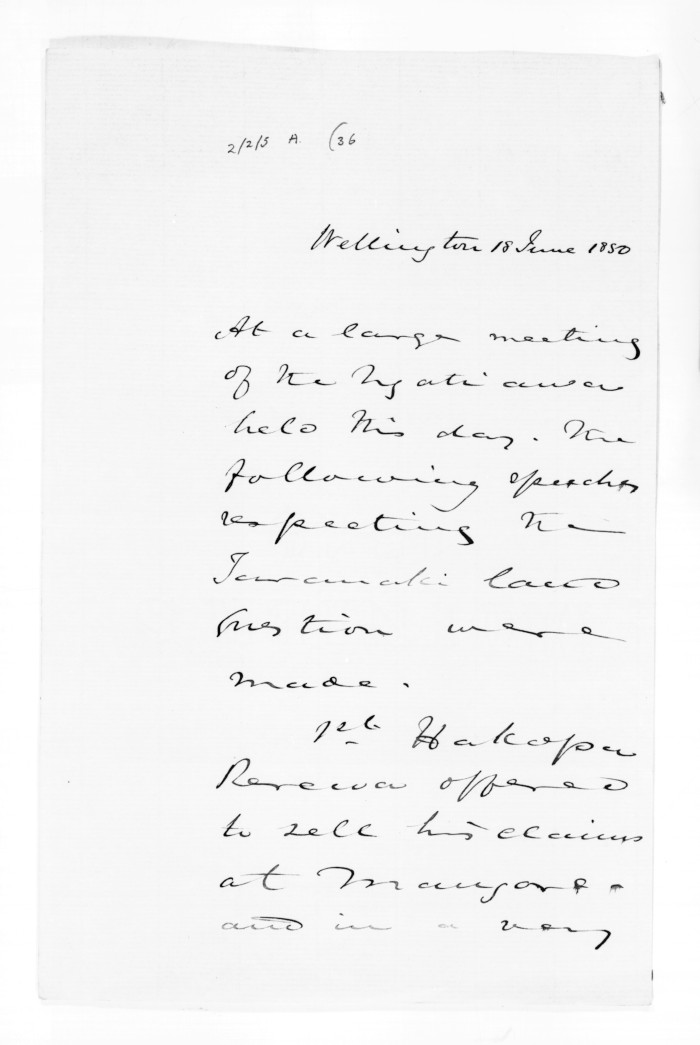 2/2/5 A. (36
Wellington 18 June 1850
At a large meeting
of the Ngatiawa
held this day. the
following speeches
respecting the
Taranaki land
question were
made.
1st Hakopa
Rerewa offered
to sell his claims
at Mangore.
and in a very